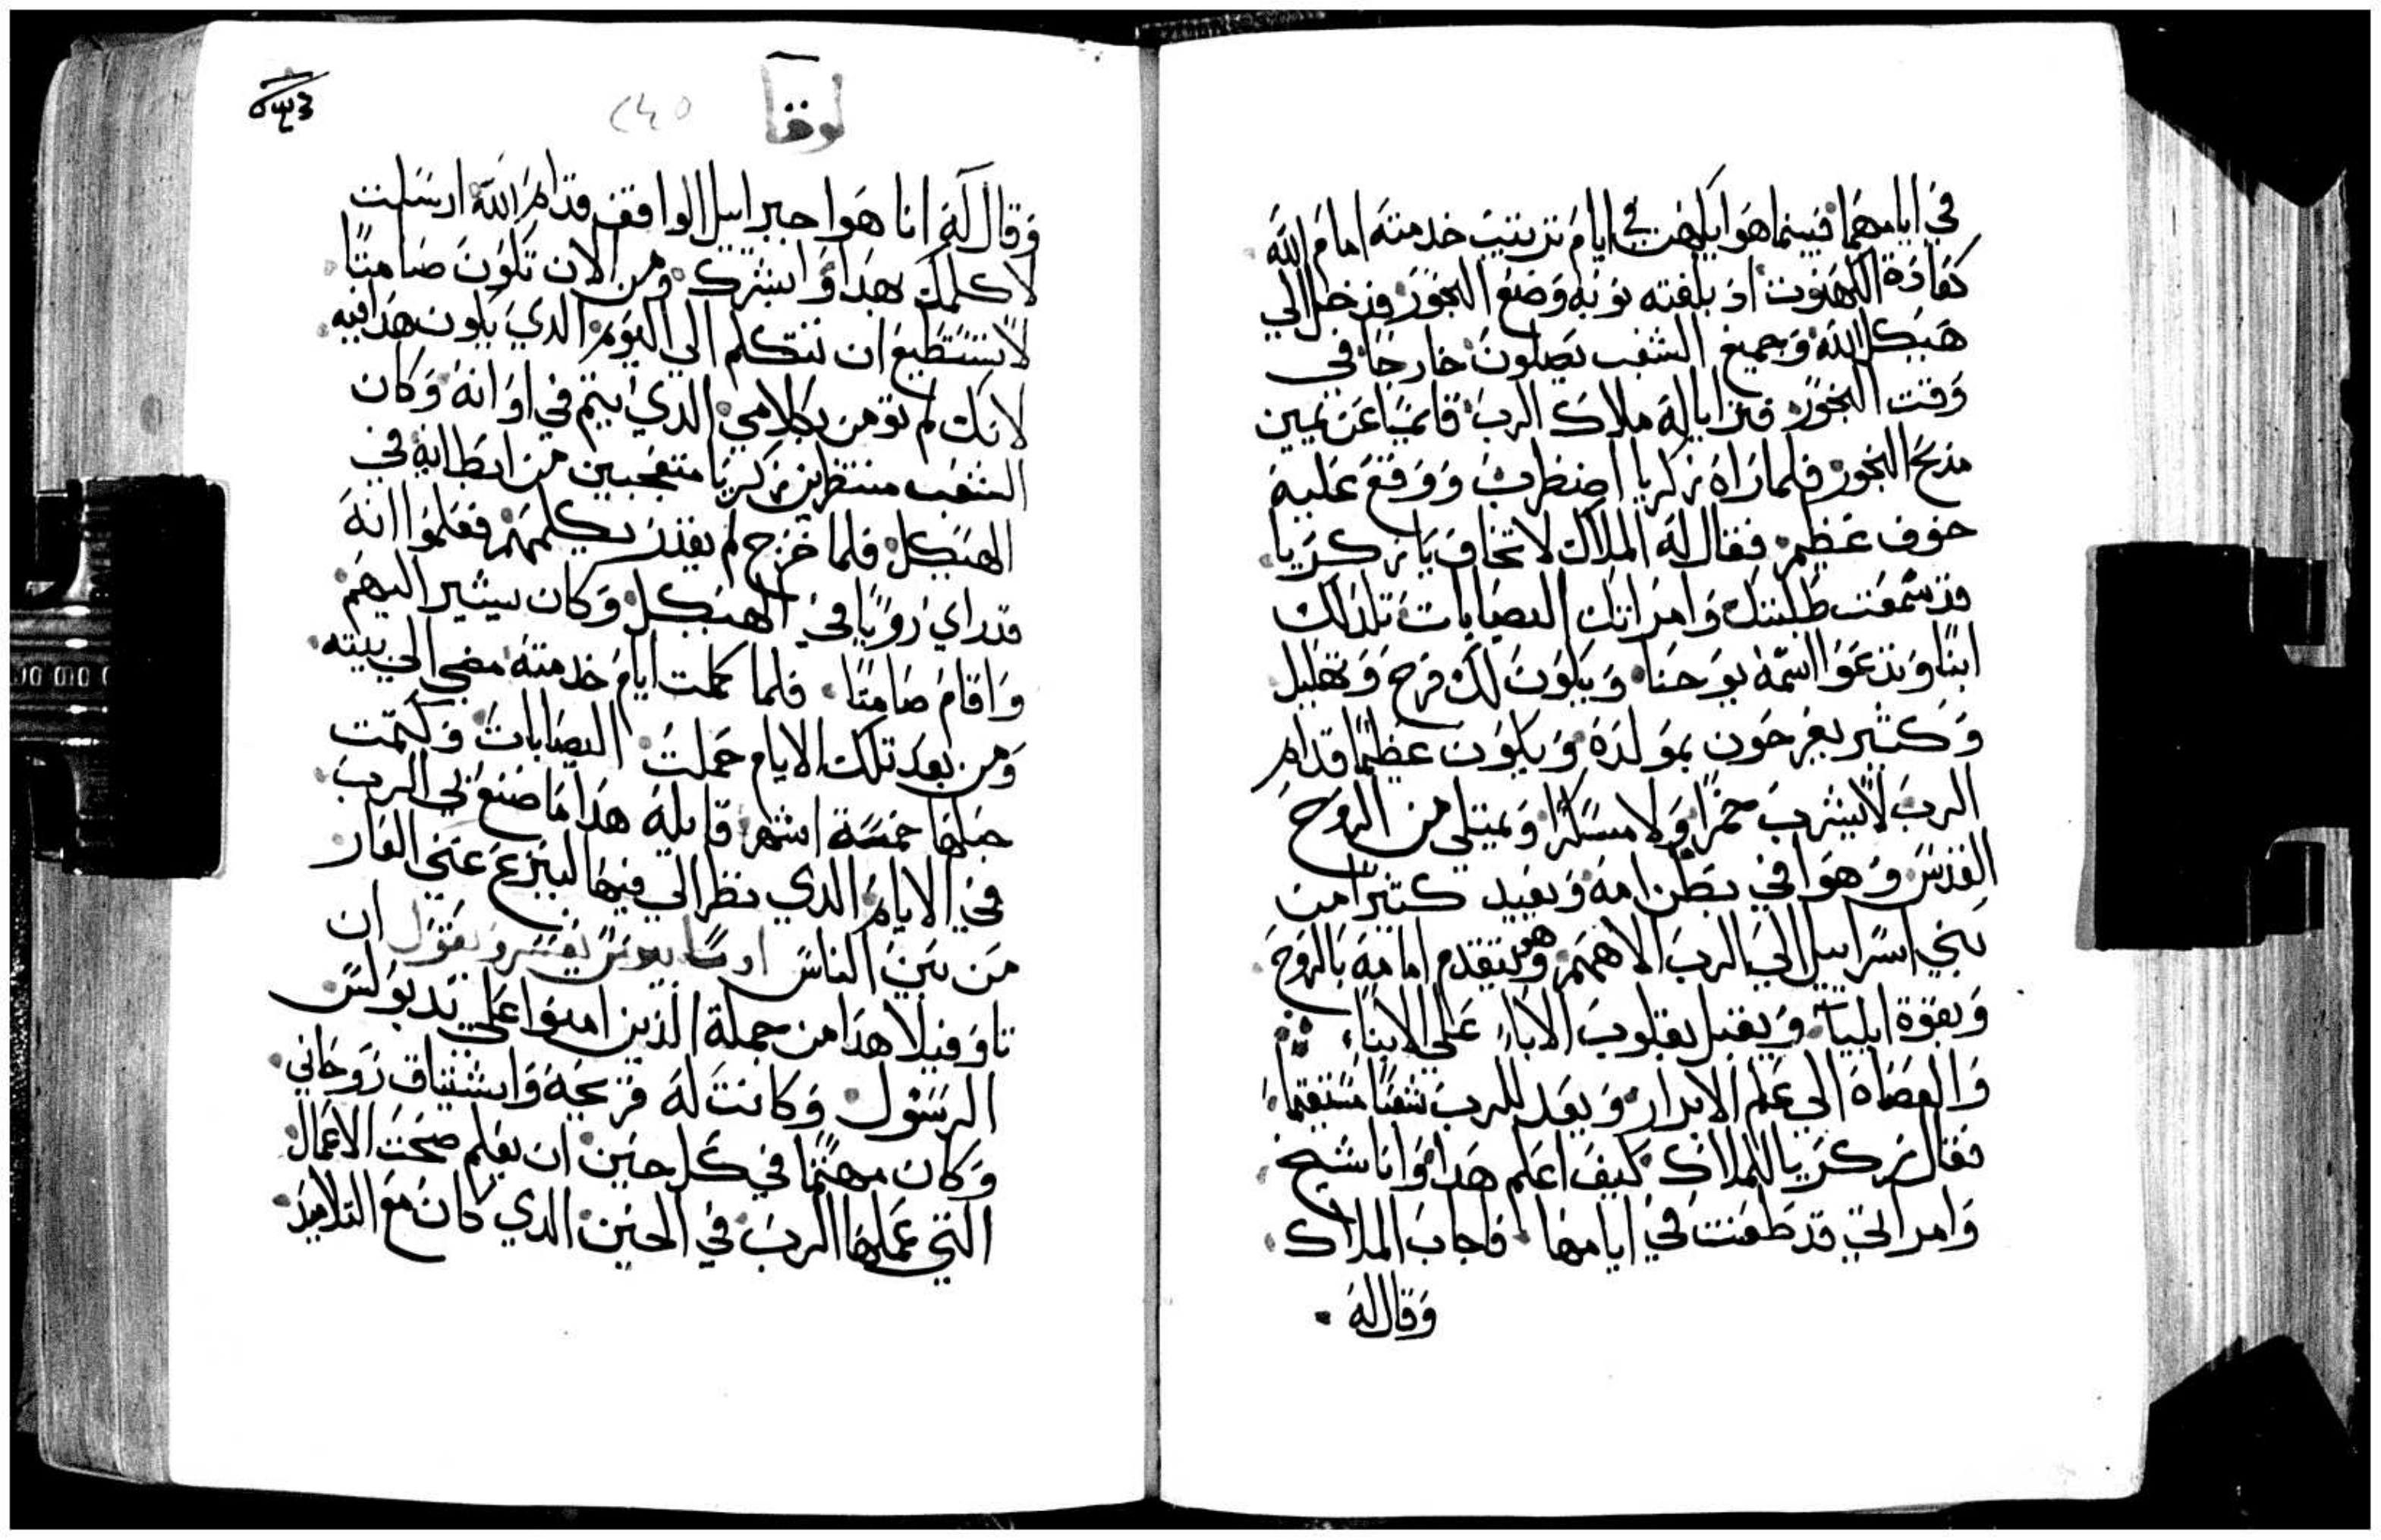 في ايامهما فبينما هوا يكهن في ايام ترتيب خدمته امام الله
كعادة الكهنوت اذ بلغته نوبه وضع البخور فدخل الي
هيكل الله وجميع الشعب يصلون خارجا في
وقت البخور فترايا له ملاك الرب قايما عن يمين
مذبح البخور فلما راه زكريا اضطرب ووقع عليه
خوف عظيم فقال له الملاك لا تخاف يا زكريا
قد سمعت طلبتك وامراتك اليصابات تلد لك
ابنا وتدعوا اسمه يوحنا ويكون لك فرح وتهليل
وكثير يفرحون بمولده ويكون عظيما قدام
الرب لا يشرب خمرا ولا مسكرا ويمتلي من الروح
القدس وهوا في بطن امه ويعيد كثيرا من
بني اسراييل الي الرب الاههم وهو يتقدم امامه بالروح
وبقوة ايليا ويقبل بقلوب الاباء علي الابناء
والعصاة الي علم الابرار ويعد للرب شعبا مستقيما
فقال زكريا للملاك كيف اعلم هدا وانا شيخ
وامراتي قد طعنت في ايامها فاجاب الملاك
وقال له
لوقا
وقال له انا هوا جبراييل الواقف قدام الله ارسلت
لاكلمك بهدا وابشرك ومن الان تكون صامتا
لا تستطيع ان تتكلم الي اليوم الدي يكون هدا فيه
لانك لم تومن بكلامي الدي يتم في اوانه وكان
الشعب منتظرين زكريا متعجبين من ابطايه في
الهيكل فلما خرج لم يقدر يكلمهم فعلموا انه
قد راي رويا في الهيكل وكان يشير اليهم
واقام صامتا فلما كملت ايام خدمته مضي الي بيته
ومن بعد تلك الايام حملت اليصابات وكتمت
حبلها خمسة اشهر قايله هدا ما صنع لي الرب
في الايام الدي نظر الي فيها لينزع عني العار
من بين الناس يفسر ويقول ان
تاوفيلا هدا من جملة الذين امنوا علي يد بولس
الرسول وكانت له قريحه واشتياق روحاني
وكان مهتما في كل حين ان يعلم صحت الاعمال
التي عملها الرب في الحين الدي كان مع التلاميذ